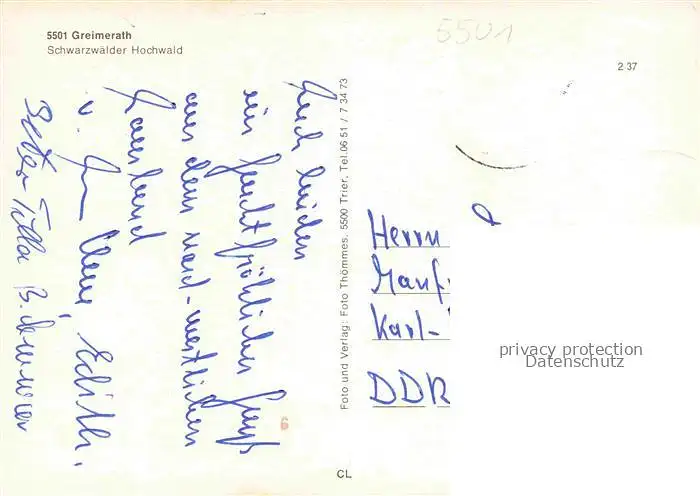 5501 Greimerath
Schwarzwälder Hochwald
5501
2 37
Euch beiden
ein feuchtfröhlicher Gruß
aus dem nord-westlichen
u. Edith.
Foto und Verlag: Foto Thömmes, 5500 Trier, Tel. 06 51 / 7 34 73
Herrn
Manf
Karl-
DDR
privacy protection
Datenschutz
6
CL